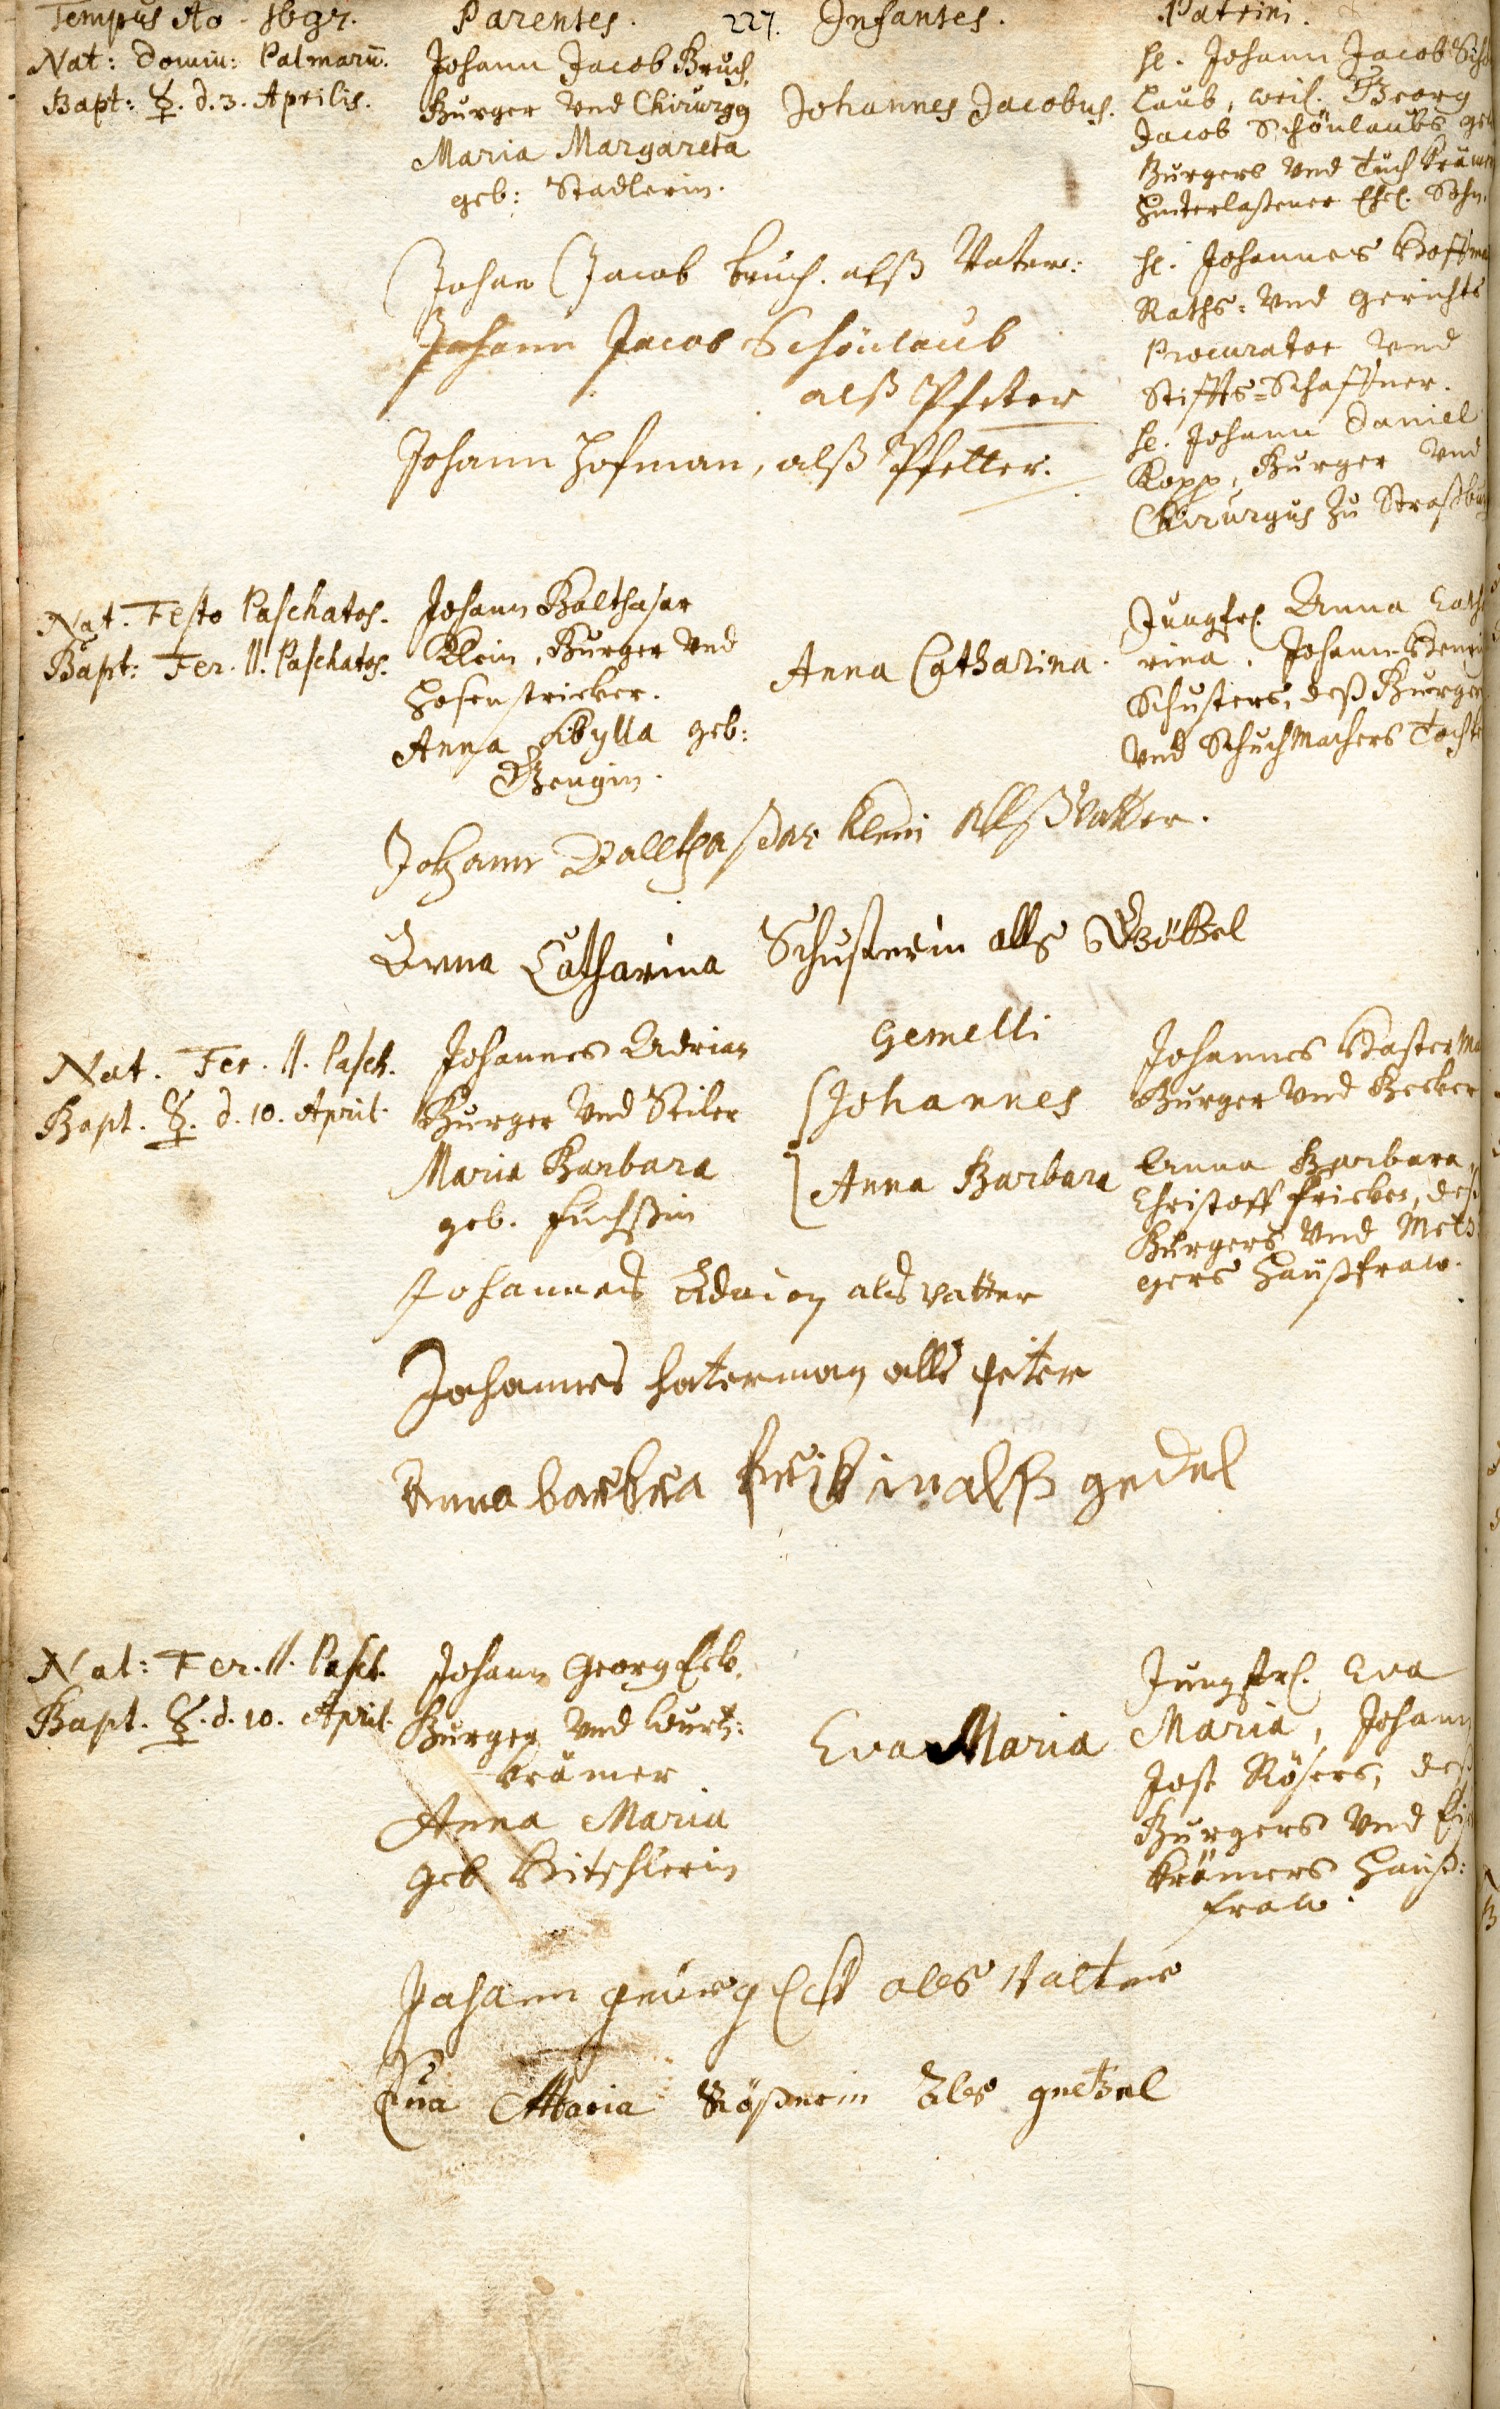 Tempus Ao 1697. Parentes. 227. Infantes. Patrini.
Nat: Domin: Palmaru.
Bapt: ☿. d. 3. Aprilis.
Johann Jacob Bruch,
Burger vnd Chirurg9
Maria Margareta
geb: Stadlerin.
Johannes Jacobus.
H. Johann Jacob Schö
laub, weil. Georg
Jacob Schönlaubs gew
Burgers vnd Tuch Kräm
hinterlaßener Ehel. Sohn.
H. Johannes Hoffma
Raths- vnd Gerichts
Procurator vnd
Stiffts-Schaffner.
H. Johann Daniel
Kopp, Burger vnd
Chirurgus zu Straßbu
Johan Jacob bruch. alß Vater:
Johann Jacob Schönlaub
alß Pfeter
Johann Hofman, alß Pfetter.
Nat. Festo Paschatos.
Bapt: Fer. II. Paschatos.
Johann Balthasar
Klein, Burger vnd
Hosenstricker.
Anna Sibylla geb:
Anna Catharina.
Jungfr. Anna Catha
rina, Johann Henri
Schusters, deß Burger
vnd Schuchmachers Tocht
Johann Balthasar Klein alß Vatter.
Anna Catharina Schusterin alls
Nat. Fer. II. Pasch.
Bapt. ☿. d. 10. April.
Johannes Adrian
Burger vnd Seiler
Maria Barbara
geb. Fuchßin
Gemelli
Johannes
Anna Barbara
Johannes Hasterma
Burger vnd Becker
Anna Barbara,
Christoff fricken, deß
Burgers vnd Metz
gers Haußfraw.
Johannes Adrian als vatter
Johannes haterman alls peter
Anna barbra frickin alß gedel
Nat: Fer. II. Pasch.
Bapt. ☿. d. 10. April.
Johann Georg Eck,
Burger vnd Gurtz:
krämer
Anna Maria
geb.
Eva Maria
Jungfr. Eva
Maria, Johann
Jost Rösers, deß
Burgers vnd
krämers Hauß:
fraw.
Johann georg Eck als Vatter
Eva Maria Rößerin als gettel